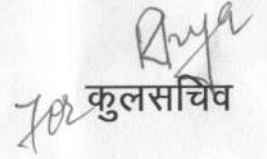 For कुलसचिव